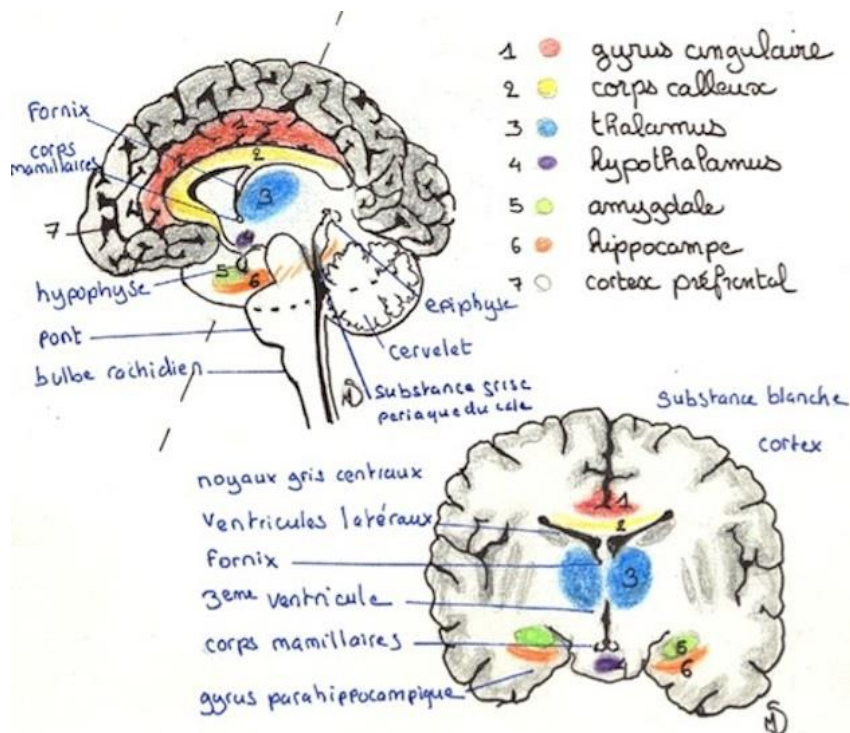 1 gyrus cingulaire
2 corps calleux
3 thalamus
4 hypothalamus
5 amygdale
6 hippocampe
7 cortex préfrontal
Fornix
corps
mamillaires
1
1
2
3
7
5
6
hypophyse
pont
bulbe rachidien
epiphyse
cervelet
substance grise
periaque du cale
substance blanche
cortex
noyaux gris centraux
ventricules latéraux
Fornix
3eme ventricule
corps mamillaires
gyrus parahippocampique
1
2
3
5
6